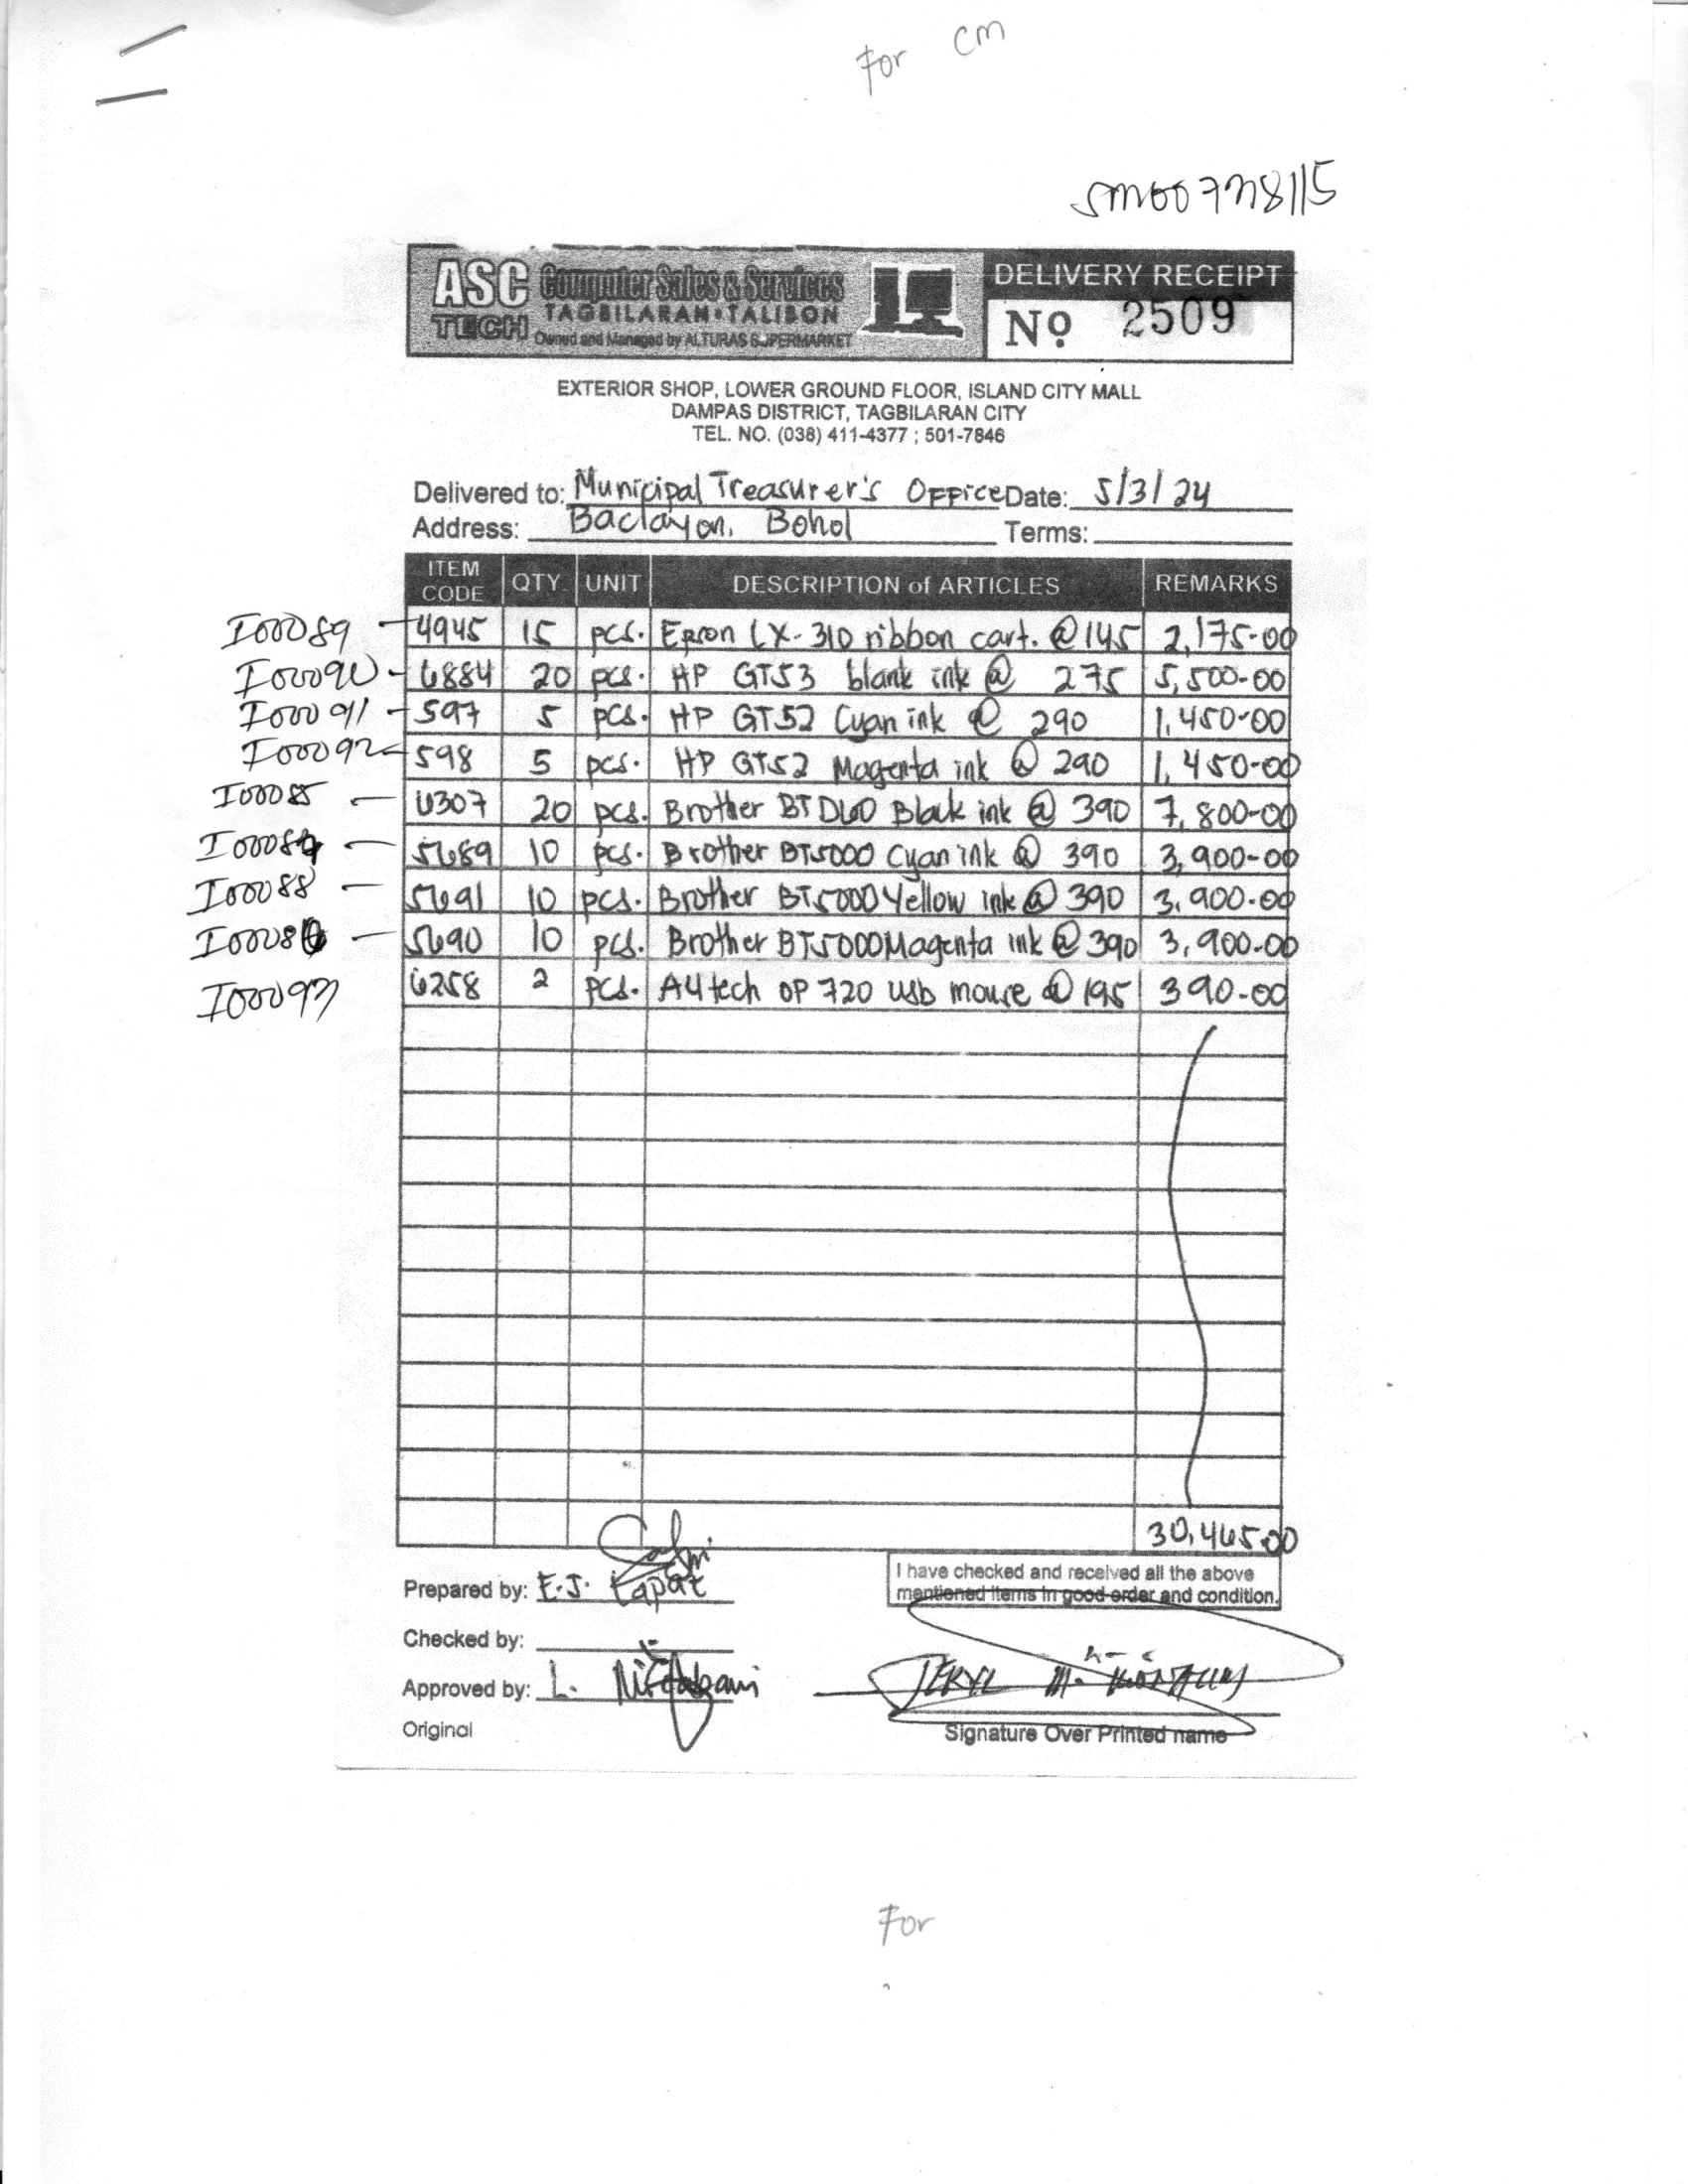 For cm
ASC TECH Computer Sales & Services
TAGBILARAN • TALIBON
Owned and Managed by ALTURAS SUPERMARKET
DELIVERY RECEIPT
Nº 2509
EXTERIOR SHOP, LOWER GROUND FLOOR, ISLAND CITY MALL
DAMPAS DISTRICT, TAGBILARAN CITY
TEL. NO. (038) 411-4377 ; 501-7846
Delivered to: Municipal Treasurer's Office Date: 5/3/24
Address: Baclayon, Bohol Terms:
ITEM CODE QTY. UNIT DESCRIPTION of ARTICLES REMARKS
I00089 - 4945 15 pcs. Epson LX-310 ribbon cart. @ 145 2,175-00
I00090 - 6884 20 pcs. HP GT53 blank ink @ 275 5,500-00
I00091 - 597 5 pcs. HP GT52 Cyan ink @ 290 1,450-00
I00092 - 598 5 pcs. HP GT52 Magenta ink @ 290 1,450-00
I00085 - 6307 20 pcs. Brother BTD60 Black ink @ 390 7,800-00
- 5689 10 pcs. Brother BT5000 Cyan ink @ 390 3,900-00
I00088 - 5691 10 pcs. Brother BT5000 Yellow ink @ 390 3,900-00
- 5690 10 pcs. Brother BT5000 Magenta ink @ 390 3,900-00
I00093 6258 2 pcs. A4tech OP 720 usb mouse @ 195 390-00
30,465.00
Prepared by: E.J.
I have checked and received all the above
mentioned items in good order and condition.
Checked by:
Approved by: L.
JERYL M.
Original
Signature Over Printed name
For